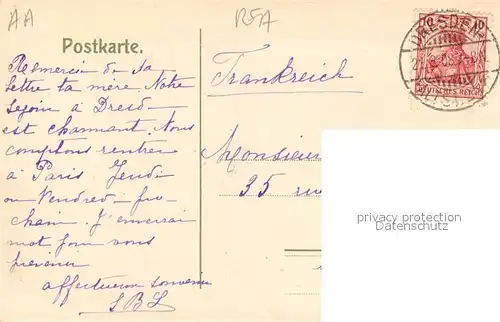 AA
R5A
Postkarte.
Remercie de sa
lettre ta mère. Notre
séjour à Dresd
est charmant. Nous
comptons rentrer
à Paris Jeudi
ou Vendredi pro-
chain. J'enverrai
mot pour vous
prévenir
affectueux souvenir
Frankreich
Monsieur
35 rue
DRESDEN
10 10
DEUTSCHES REICH
privacy protection
Datenschutz